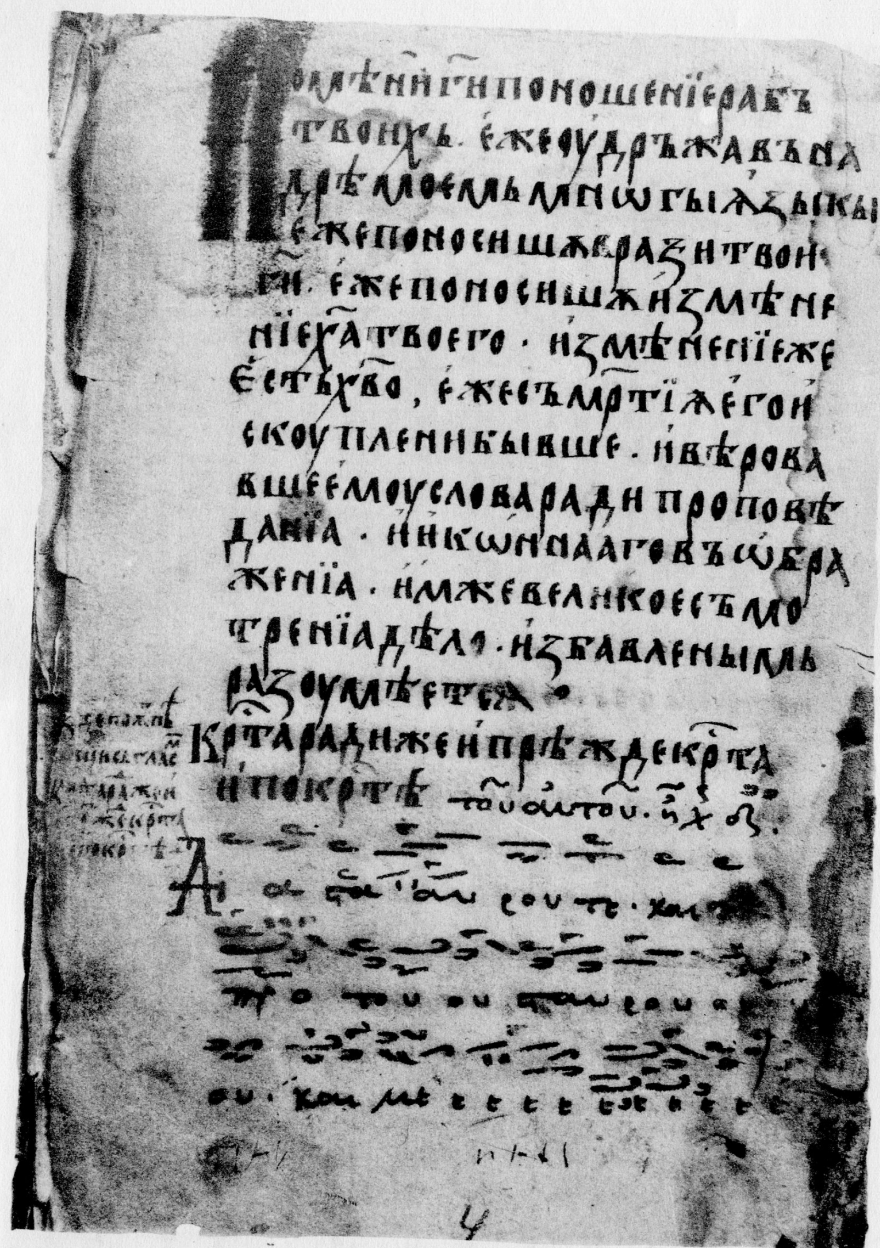 Помѣни г҃и поношенїе рабъ
твоихь. е́же оу҆дръжавъ на
дрѣ моемь мнѡгы ѫзыкы
е́же поносишѫ врази твои
г҃и. е́же поносишѫ и҆змѣне
нїе х҃а твоего · и҆змѣненїе еже
е́сть хв҃о, е́же съмр҃тїѫ е́го и҆
скоуплени бывше · и҆ вѣрова
вшее́моу слова ради проповѣ
данїа · и҆ и҆кѡнна аговъ ѡ҆бра
женїа · и҆мже великое съмо
тренїа дѣло · и҆збавленымь
разоумѣетсѧ
Кр҃та ради же и҆ прѣжде кр҃та
и҆ по кр҃тѣ τοῦ αυτοῦ. ἦχ
Αι α σταυ ρου τε · και
προ του ου σταυ ρου
ου · και με ε ε ε ε ε ε ε ε ε
4